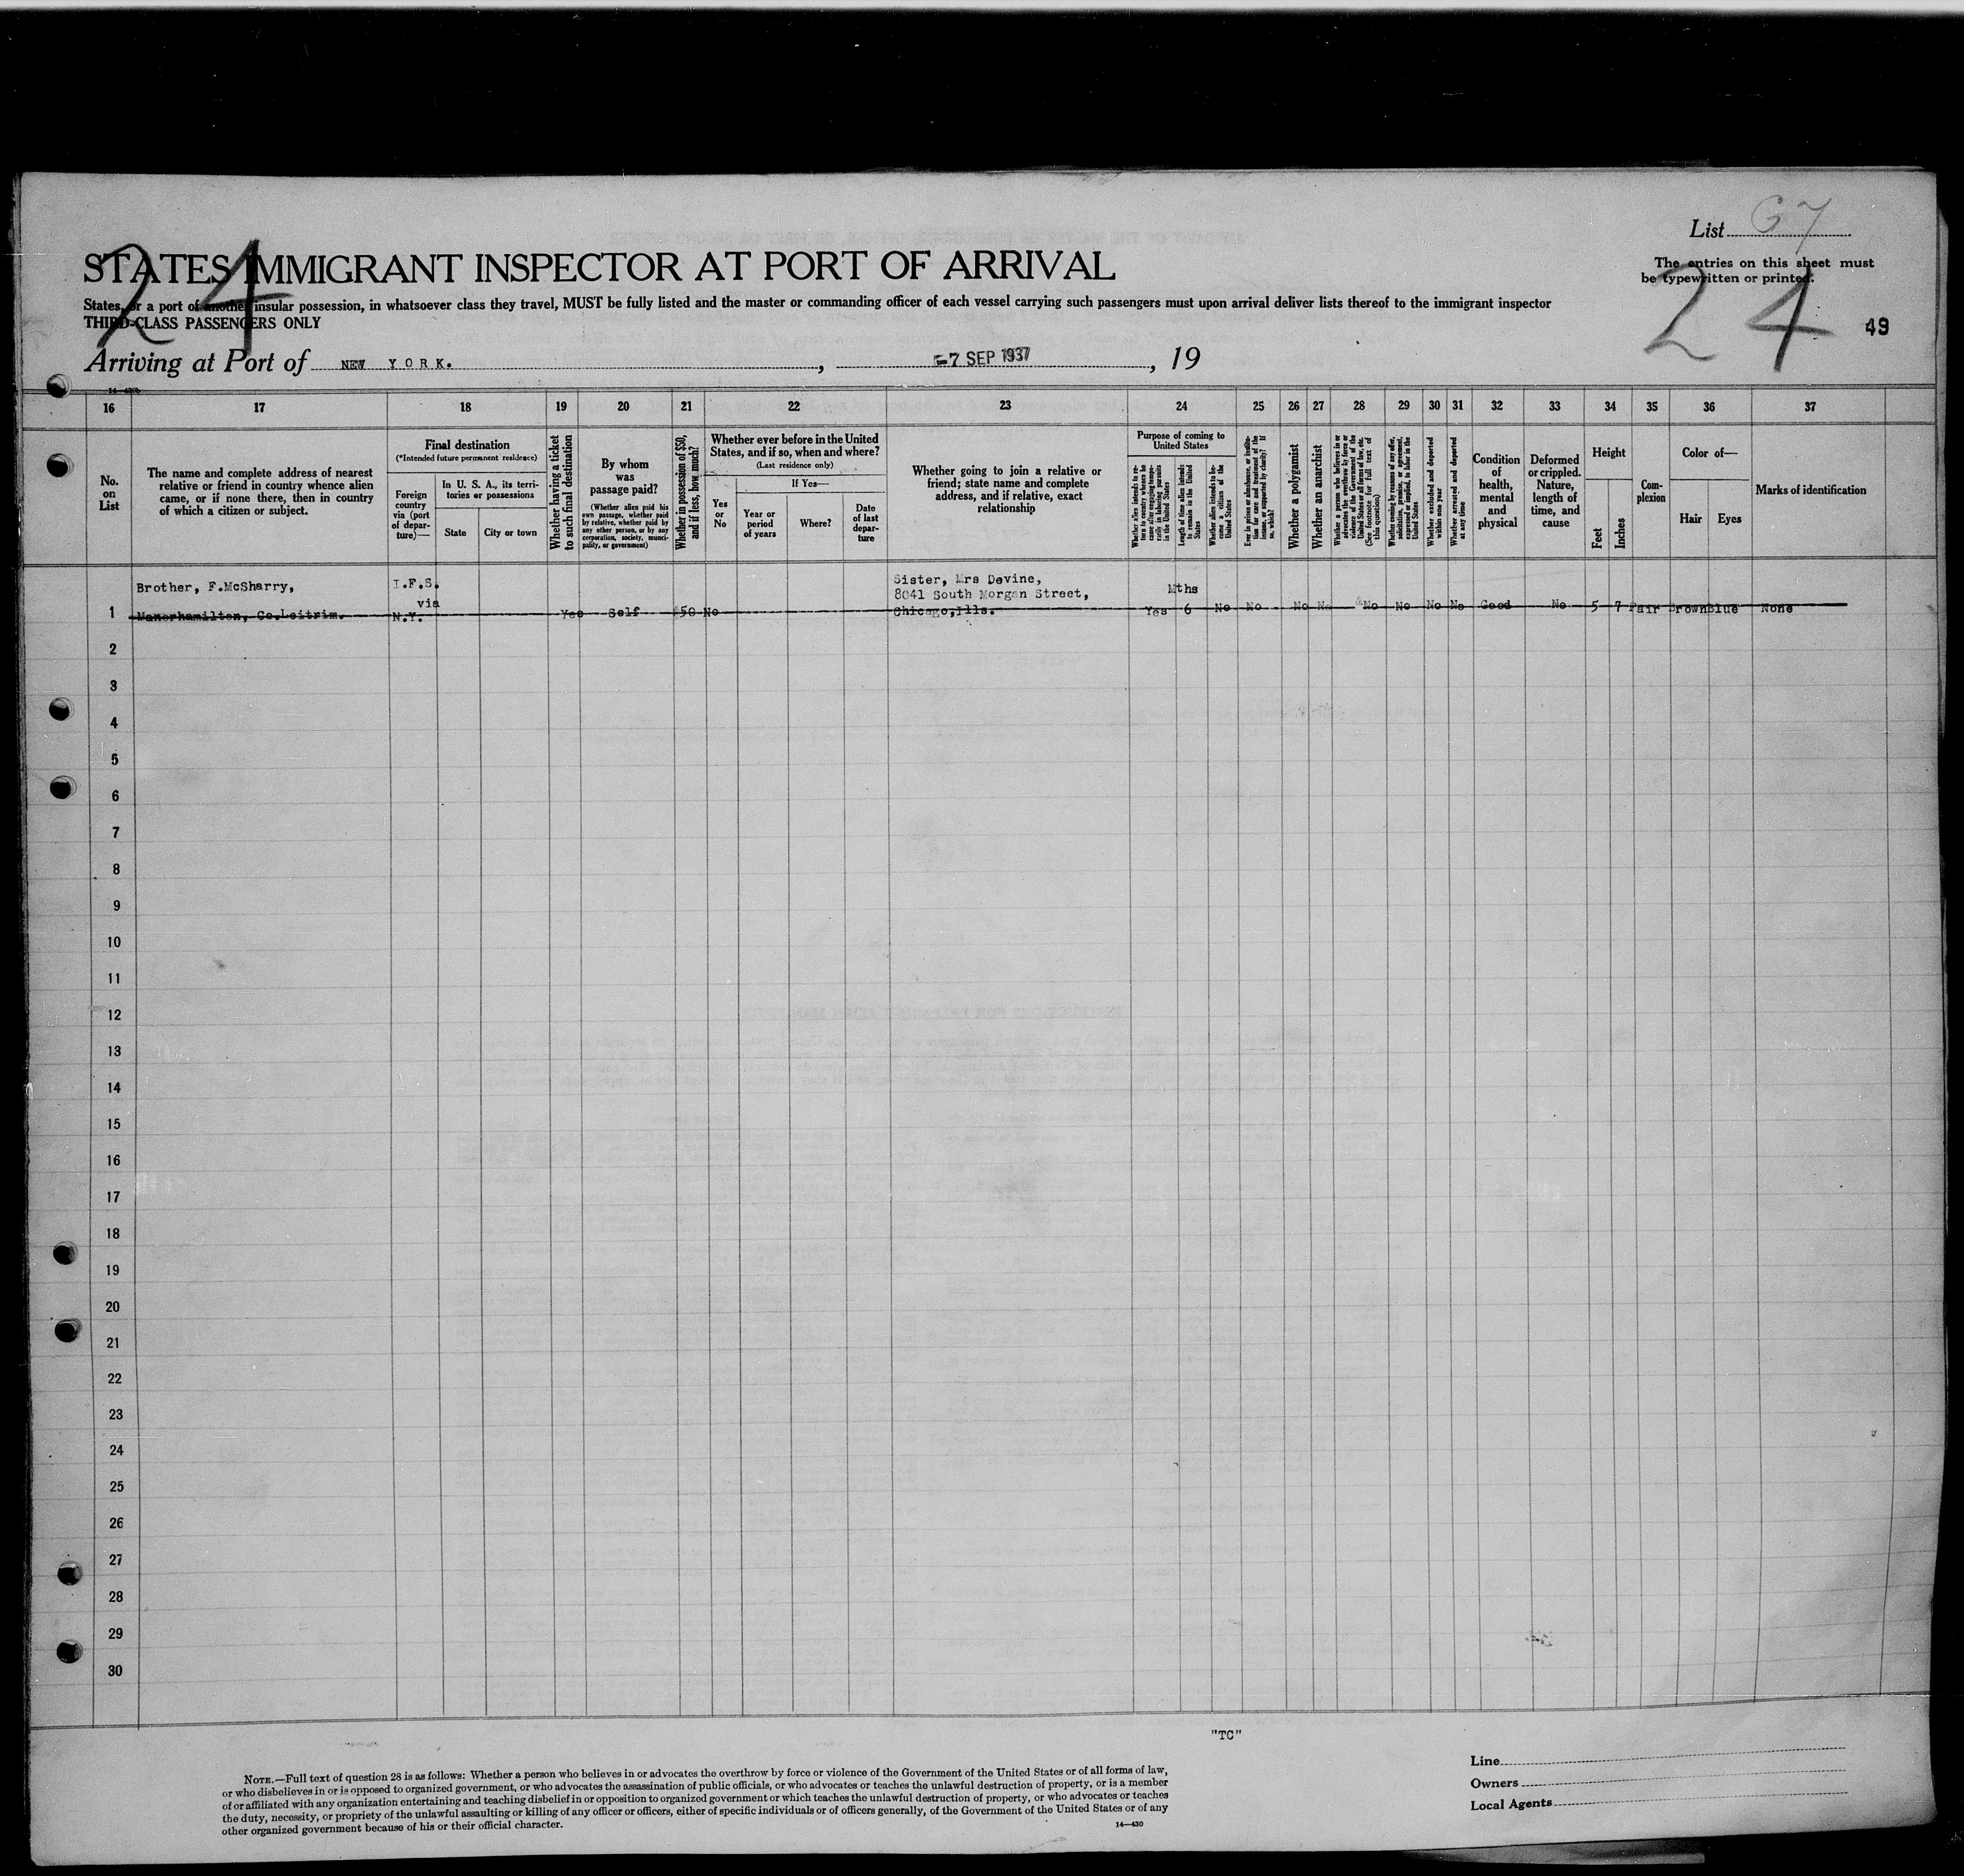 List 67
STATES IMMIGRANT INSPECTOR AT PORT OF ARRIVAL
The entries on this sheet must
be typewritten or printed.
States, or a port of another insular possession, in whatsoever class they travel, MUST be fully listed and the master or commanding officer of each vessel carrying such passengers must upon arrival deliver lists thereof to the immigrant inspector
THIRD-CLASS PASSENGERS ONLY
24
24
49
Arriving at Port of NEW YORK. , -7 SEP 1937 , 19
16 17 18 19 20 21 22 23 24 25 26 27 28 29 30 31 32 33 34 35 36 37
No.
on
List
The name and complete address of nearest
relative or friend in country whence alien
came, or if none there, then in country
of which a citizen or subject.
Final destination
(*Intended future permanent residence)
Foreign
country
via (port
of depar-
ture)—
In U. S. A., its terri-
tories or possessions
State
City or town
Whether having a ticket
to such final destination
By whom
was
passage paid?
(Whether alien paid his
own passage, whether paid
by relative, whether paid by
any other person, or by any
corporation, society, munici-
pality, or government)
Whether in possession of $50,
and if less, how much?
Whether ever before in the United
States, and if so, when and where?
(Last residence only)
Yes
or
No
If Yes—
Year or
period
of years
Where?
Date
of last
depar-
ture
Whether going to join a relative or
friend; state name and complete
address, and if relative, exact
relationship
Purpose of coming to
United States
Whether alien intends to re-
turn to country whence he
came after engaging tempo-
rarily in laboring pursuits
in the United States
Length of time alien intends
to remain in the United
States
Whether alien intends to be-
come a citizen of the
United States
Ever in prison or almshouse, or institu-
tion for care and treatment of the
insane, or supported by charity? If
so, which?
Whether a polygamist
Whether an anarchist
Whether a person who believes in or
advocates the overthrow by force or
violence of the Government of the
United States or all forms of law, etc.
(See footnote for full text of
this question)
Whether coming by reason of any offer,
solicitation, promise, or agreement,
expressed or implied, to labor in the
United States
Whether excluded and deported
within one year
Whether arrested and deported
at any time
Condition
of
health,
mental
and
physical
Deformed
or crippled.
Nature,
length of
time, and
cause
Height
Feet
Inches
Com-
plexion
Color of—
Hair
Eyes
Marks of identification
Brother, F.McSharry, I.F.S. Sister, Mrs Devine,
via 8041 South Morgan Street, Mths
1 Manorhamilton, Co.Leitrim. N.Y. Yes Self $50 No Chicago,Ills. Yes 6 No No No No No No No No Good No 5 7 Fair Brown Blue None
2
3
4
5
6
7
8
9
10
11
12
13
14
15
16
17
18
19
20
21
22
23
24
25
26
27
28
29
30
"TC"
NOTE.—Full text of question 28 is as follows: Whether a person who believes in or advocates the overthrow by force or violence of the Government of the United States or of all forms of law,
or who disbelieves in or is opposed to organized government, or who advocates the assassination of public officials, or who advocates or teaches the unlawful destruction of property, or is a member
of or affiliated with any organization entertaining and teaching disbelief in or opposition to organized government or which teaches the unlawful destruction of property, or who advocates or teaches
the duty, necessity, or propriety of the unlawful assaulting or killing of any officer or officers, either of specific individuals or of officers generally, of the Government of the United States or of any
other organized government because of his or their official character.
14—430
Line
Owners
Local Agents